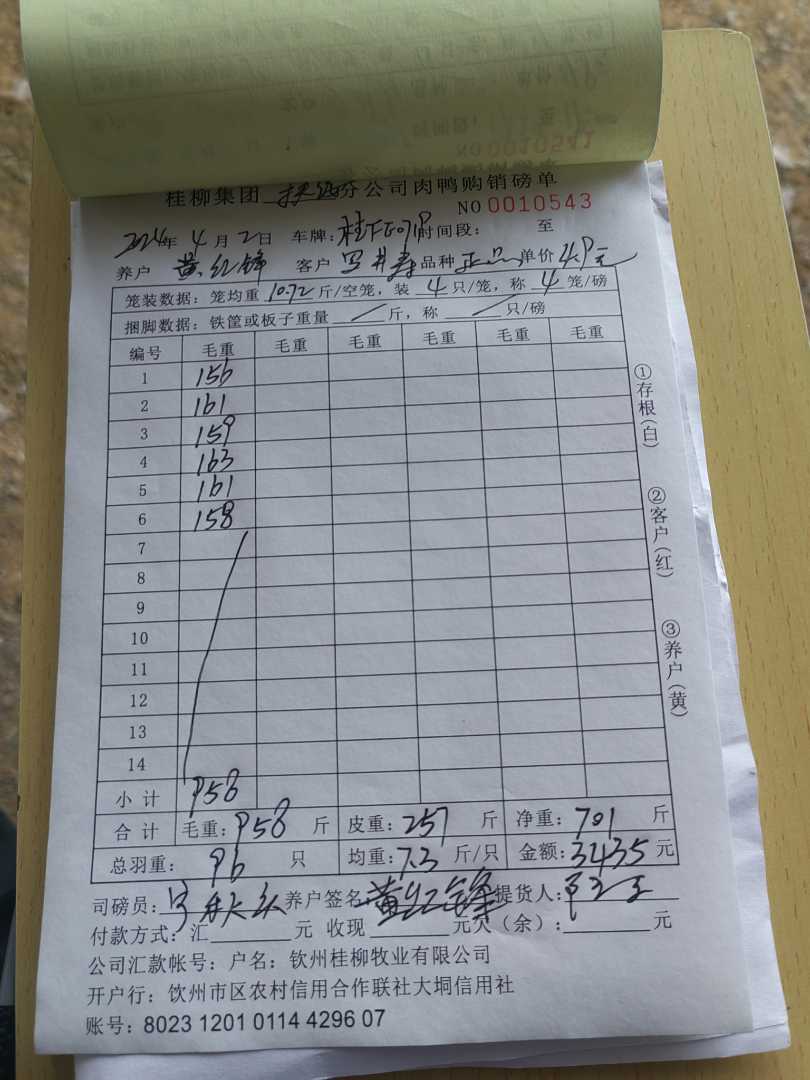 桂柳集团 分公司肉鸭购销磅单
NO 0010543
2024年 4月 2日 车牌: 桂 时间段: 至
养户 黄红锋 客户 品种 正品 单价 4.9元
笼装数据: 笼均重 10.72 斤/空笼, 装 4 只/笼, 称 4 笼/磅
捆脚数据: 铁筐或板子重量 / 斤, 称 / 只/磅
编号 毛重 毛重 毛重 毛重 毛重 毛重
1 156
2 161
3 159
4 163
5 161
6 158
7
8
9
10
11
12
13
14
小计 958
合计 毛重: 958 斤 皮重: 257 斤 净重: 701 斤
总羽重: 96 只 均重: 7.3 斤/只 金额: 3435 元
司磅员: 养户签名: 黄红锋 提货人:
付款方式: 汇 元 收现 元 欠(余): 元
公司汇款帐号: 户名: 钦州桂柳牧业有限公司
开户行: 饮州市区农村信用合作联社大垌信用社
账号: 8023 1201 0114 4296 07
①存根(白)
②客户(红)
③养户(黄)
NO 0010541